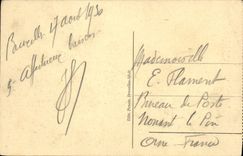 Bruxelles 17 août 1930
5 Affectueux baisers
Mademoiselle
E. Flament
Bureau de Poste
Nonant le Pin
Orne France